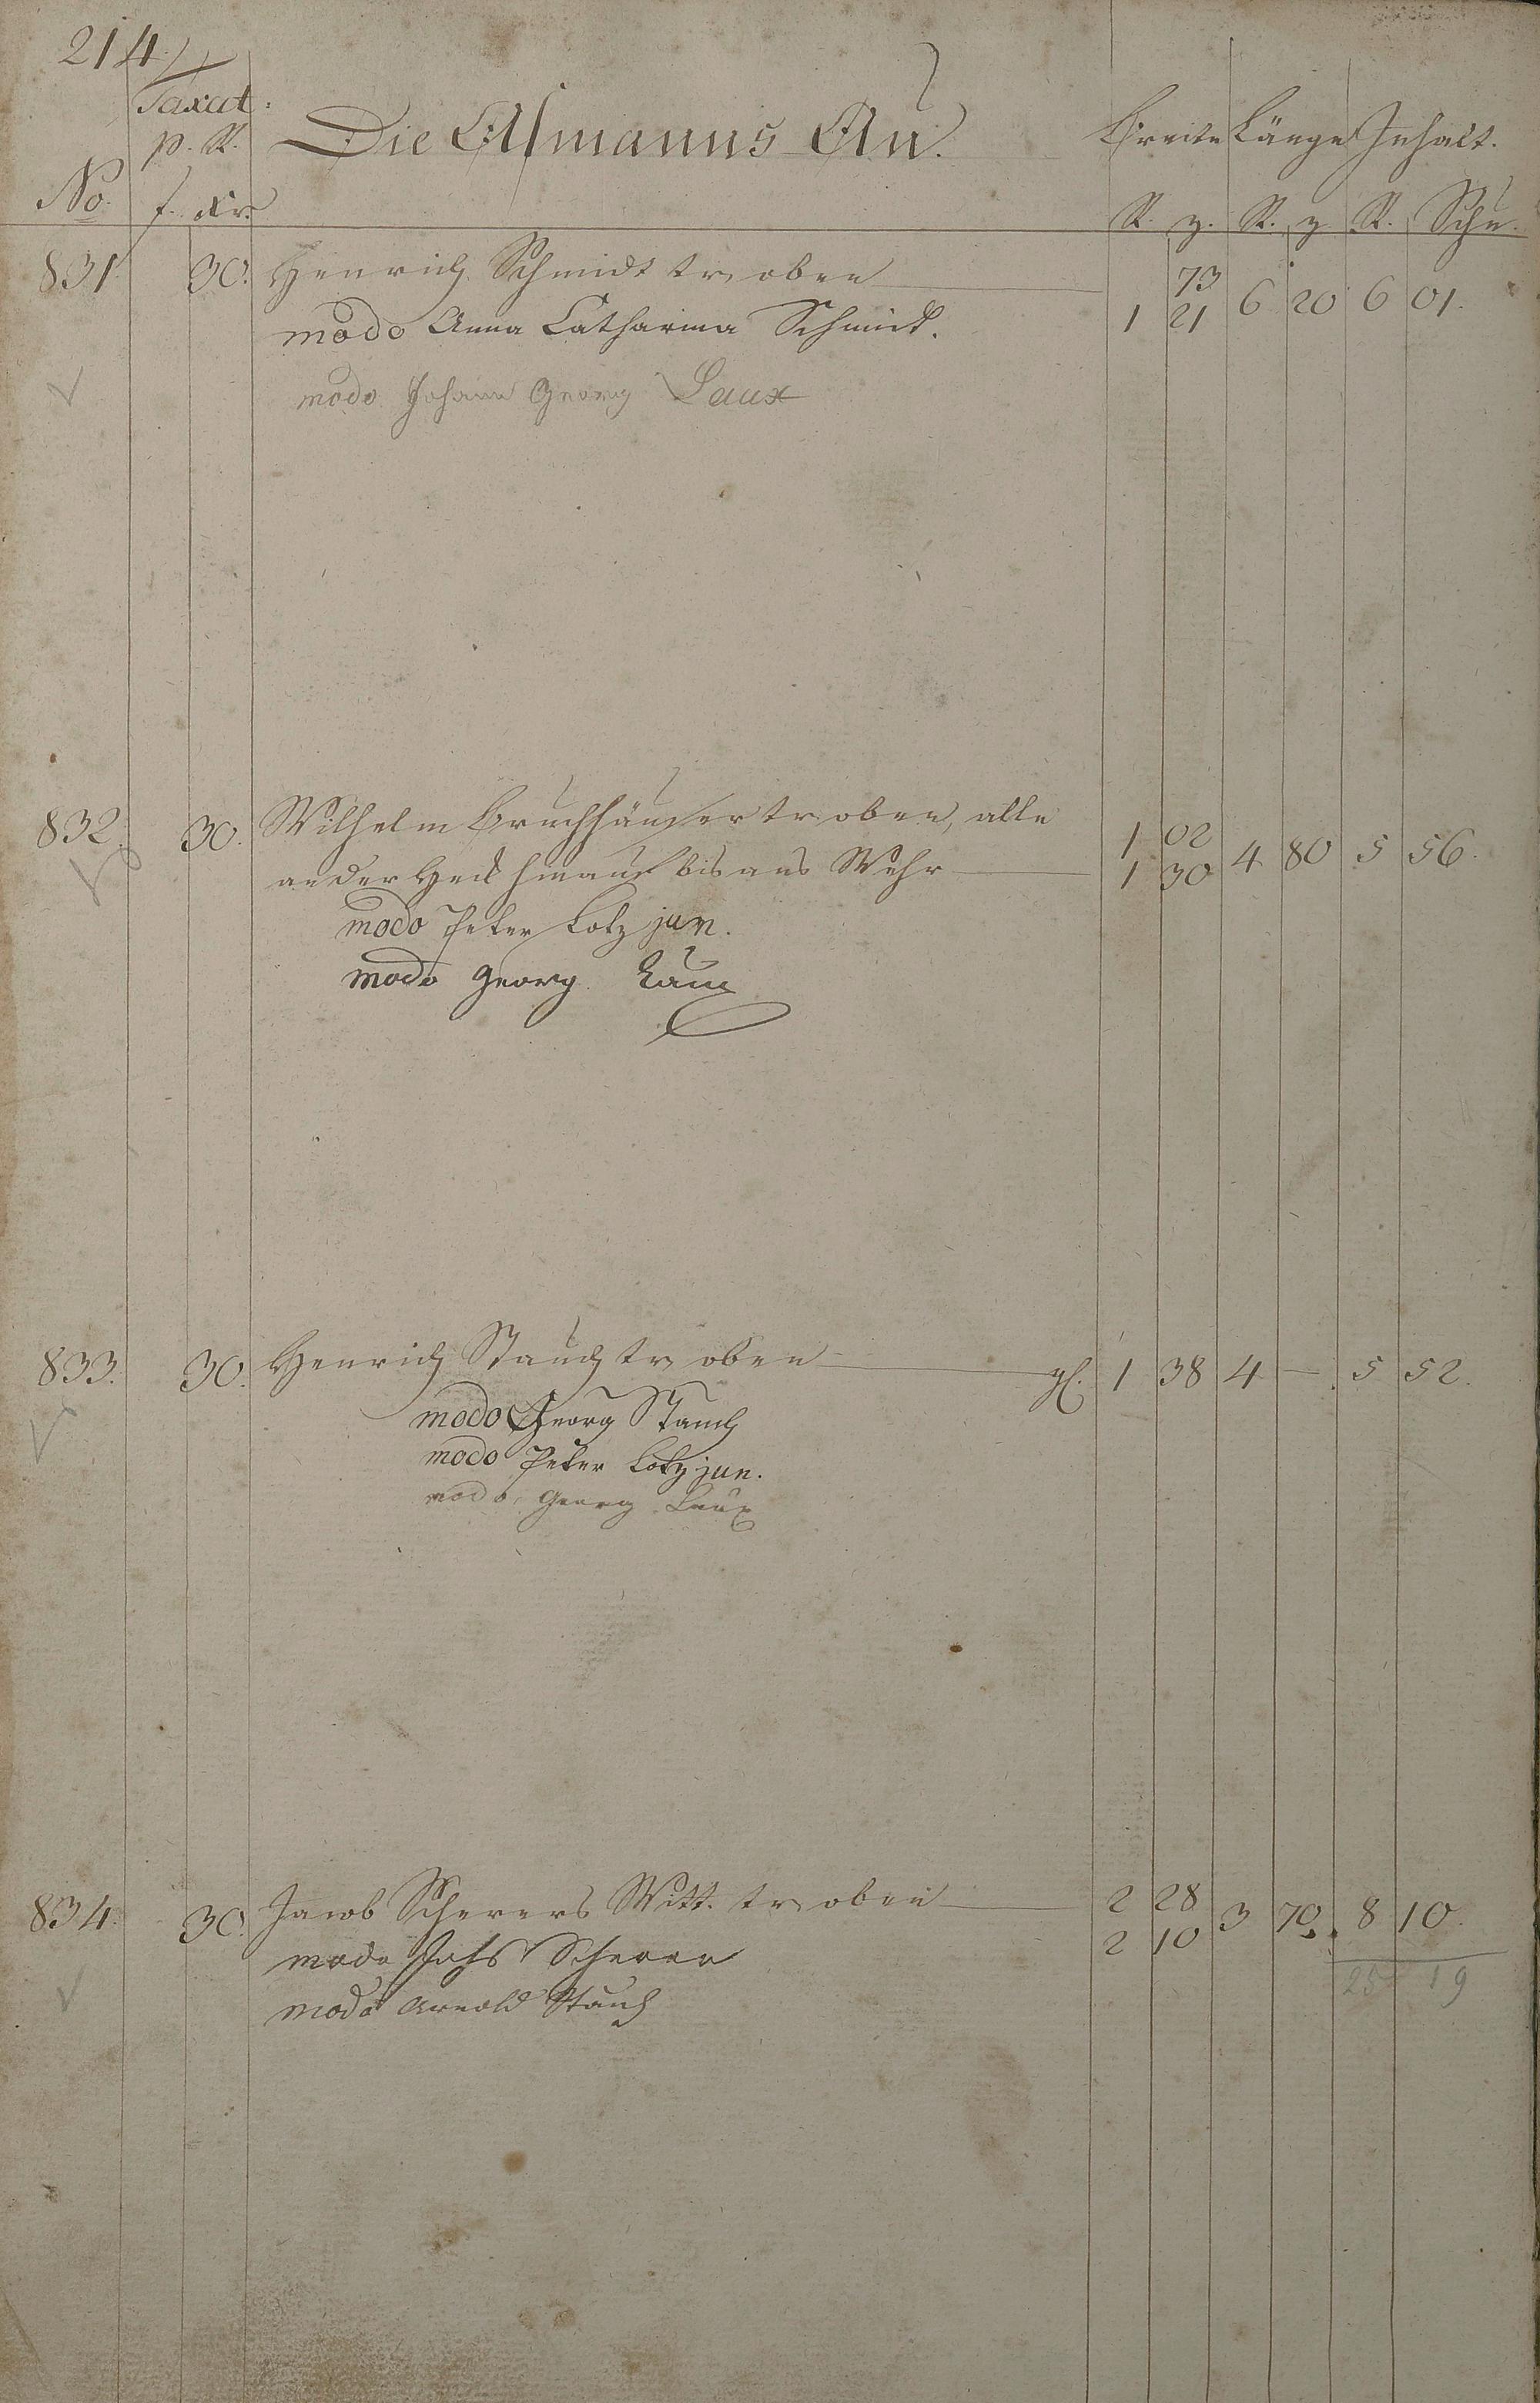 214.
Taxat.
p. R.
Die Asmanns Au.
Breite Länge Inhalt.
No. f. Xr. R. z. R. z. R. Schu.
831. 30. Henrich Schmidt tr. oben 73
1 21 6 20 6 01.
modo Anna Catharina Schmidt.
modo Johann Georg Laux
832. 30. Wilhelm Bruchhäuser tr. oben, alle 1 02
an der Heck hinauf bis ans Wehr 1 30 4 80 5 56.
modo Peter Lotz jun.
modo Georg Laux
833. 30. Henrich Stauch tr. oben gl. 1 38 4 — 5 52.
modo Georg Stauch
modo Peter Lotz jun.
modo Georg Laux
834. 30. Jacob Scherers Witt. tr. oben 2 28
2 10 3 70. 8 10.
modo Johs Scherer
25 19
modo Arnold Stauch